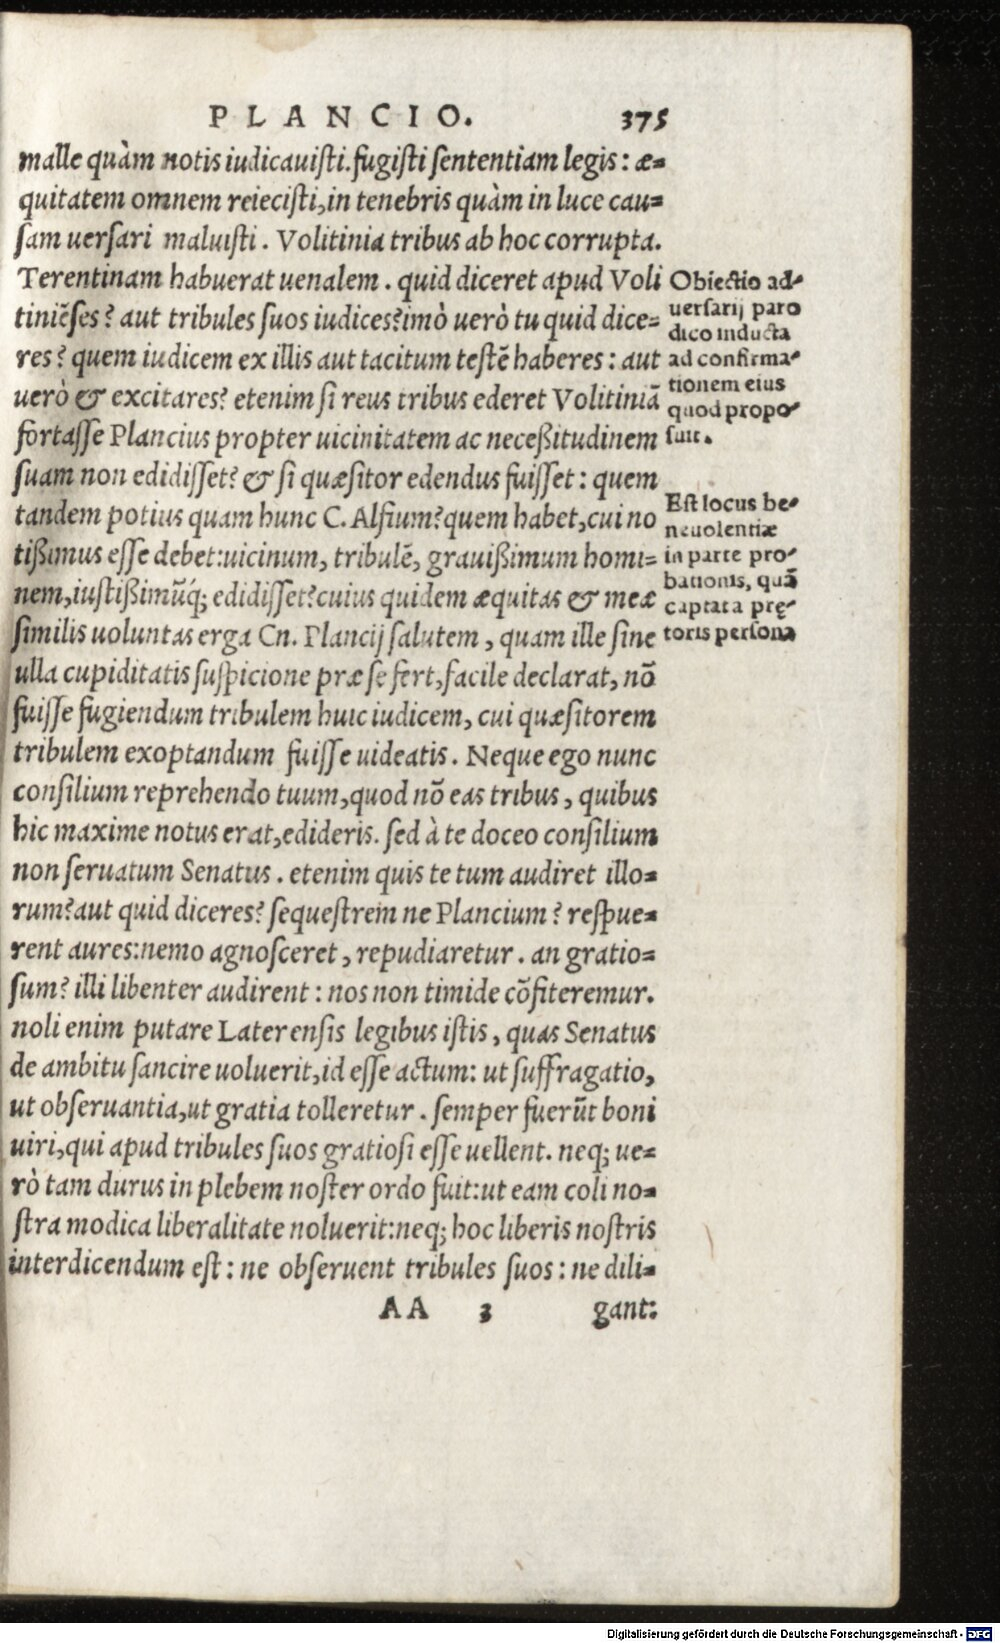 PLANCIO. 375
malle quàm notis iudicauisti. fugisti sententiam legis: æ=
quitatem omnem reiecisti, in tenebris quàm in luce cau=
sam uersari maluisti. Volitinia tribus ab hoc corrupta.
Terentinam habuerat uenalem. quid diceret apud Voli
tiniẽses? aut tribules suos iudices? imò uerò tu quid dice=
res? quem iudicem ex illis aut tacitum testẽ haberes: aut
uerò & excitares? etenim si reus tribus ederet Volitiniã
fortasse Plancius propter uicinitatem ac neceßitudinem
suam non edidisset? & si quæsitor edendus fuisset: quem
tandem potius quam hunc C. Alfium? quem habet, cui no
tißimus esse debet: uicinum, tribulẽ, grauißimum homi=
nem, iustißimũq́; edidisset? cuius quidem æquitas & meæ
similis uoluntas erga Cn. Plancij salutem, quam ille sine
ulla cupiditatis suspicione præ se fert, facile declarat, nõ
fuisse fugiendum tribulem huic iudicem, cui quæsitorem
tribulem exoptandum fuisse uideatis. Neque ego nunc
consilium reprehendo tuum, quod nõ eas tribus, quibus
hic maxime notus erat, edideris. sed à te doceo consilium
non seruatum Senatus. etenim quis te tum audiret illo=
rum? aut quid diceres? sequestrem ne Plancium? respue=
rent aures: nemo agnosceret, repudiaretur. an gratio=
sum? illi libenter audirent: nos non timide cõfiteremur.
noli enim putare Laterensis legibus istis, quas Senatus
de ambitu sancire uoluerit, id esse actum: ut suffragatio,
ut obseruantia, ut gratia tolleretur. semper fuerũt boni
uiri, qui apud tribules suos gratiosi esse uellent. neq; ue=
rò tam durus in plebem noster ordo fuit: ut eam coli no=
stra modica liberalitate noluerit: neq; hoc liberis nostris
interdicendum est: ne obseruent tribules suos: ne dili=
AA 3 gant:
Obiectio ad-
uersarij paro
dico inducta
ad confirma-
tionem eius
quod propo-
suit.
Est locus be-
neuolentiæ
in parte pro-
bationis, quã
captat a prę-
toris persona
Digitalisierung gefördert durch die Deutsche Forschungsgemeinschaft - DFG